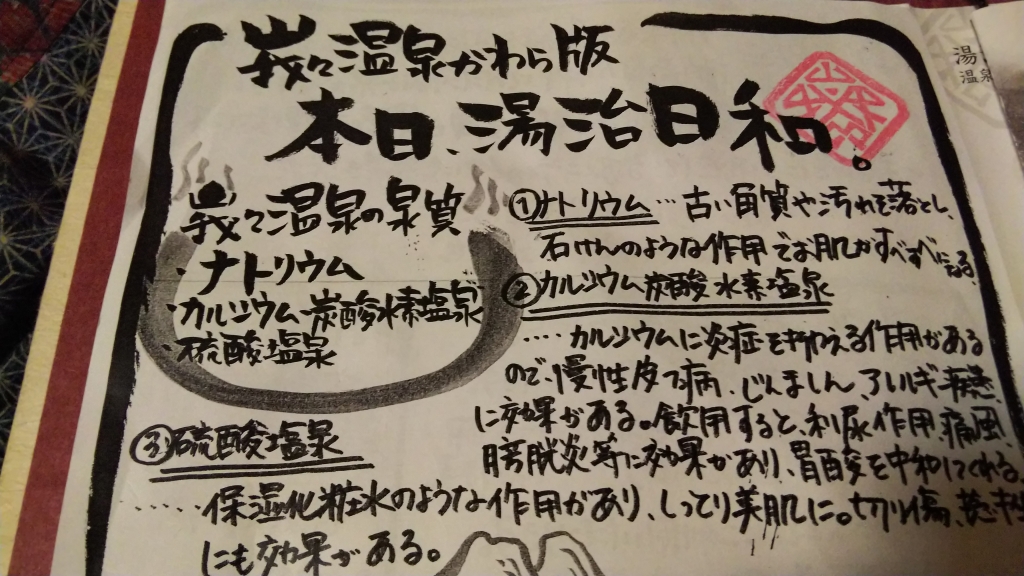 峩々温泉かわら版
本日、湯治日和。
峩々温泉の泉質
・ナトリウム
・カルシウム炭酸水素塩泉
・硫酸塩泉
①ナトリウム…古い角質や汚れを落とし、
石けんのような作用でお肌がすべすべになる。
②カルシウム炭酸水素塩泉
‥‥カルシウムに炎症を抑える作用がある
ので、慢性皮フ病、じんましん、アレルギー疾患、
に効果がある。飲用すると、利尿作用、痛風、
膀胱炎等に効果があり、胃酸を中和してくれる。
③硫酸塩泉
‥‥‥保湿化粧水のような作用があり、しっとり美肌に。切り傷、
にも効果がある。
湯
温泉